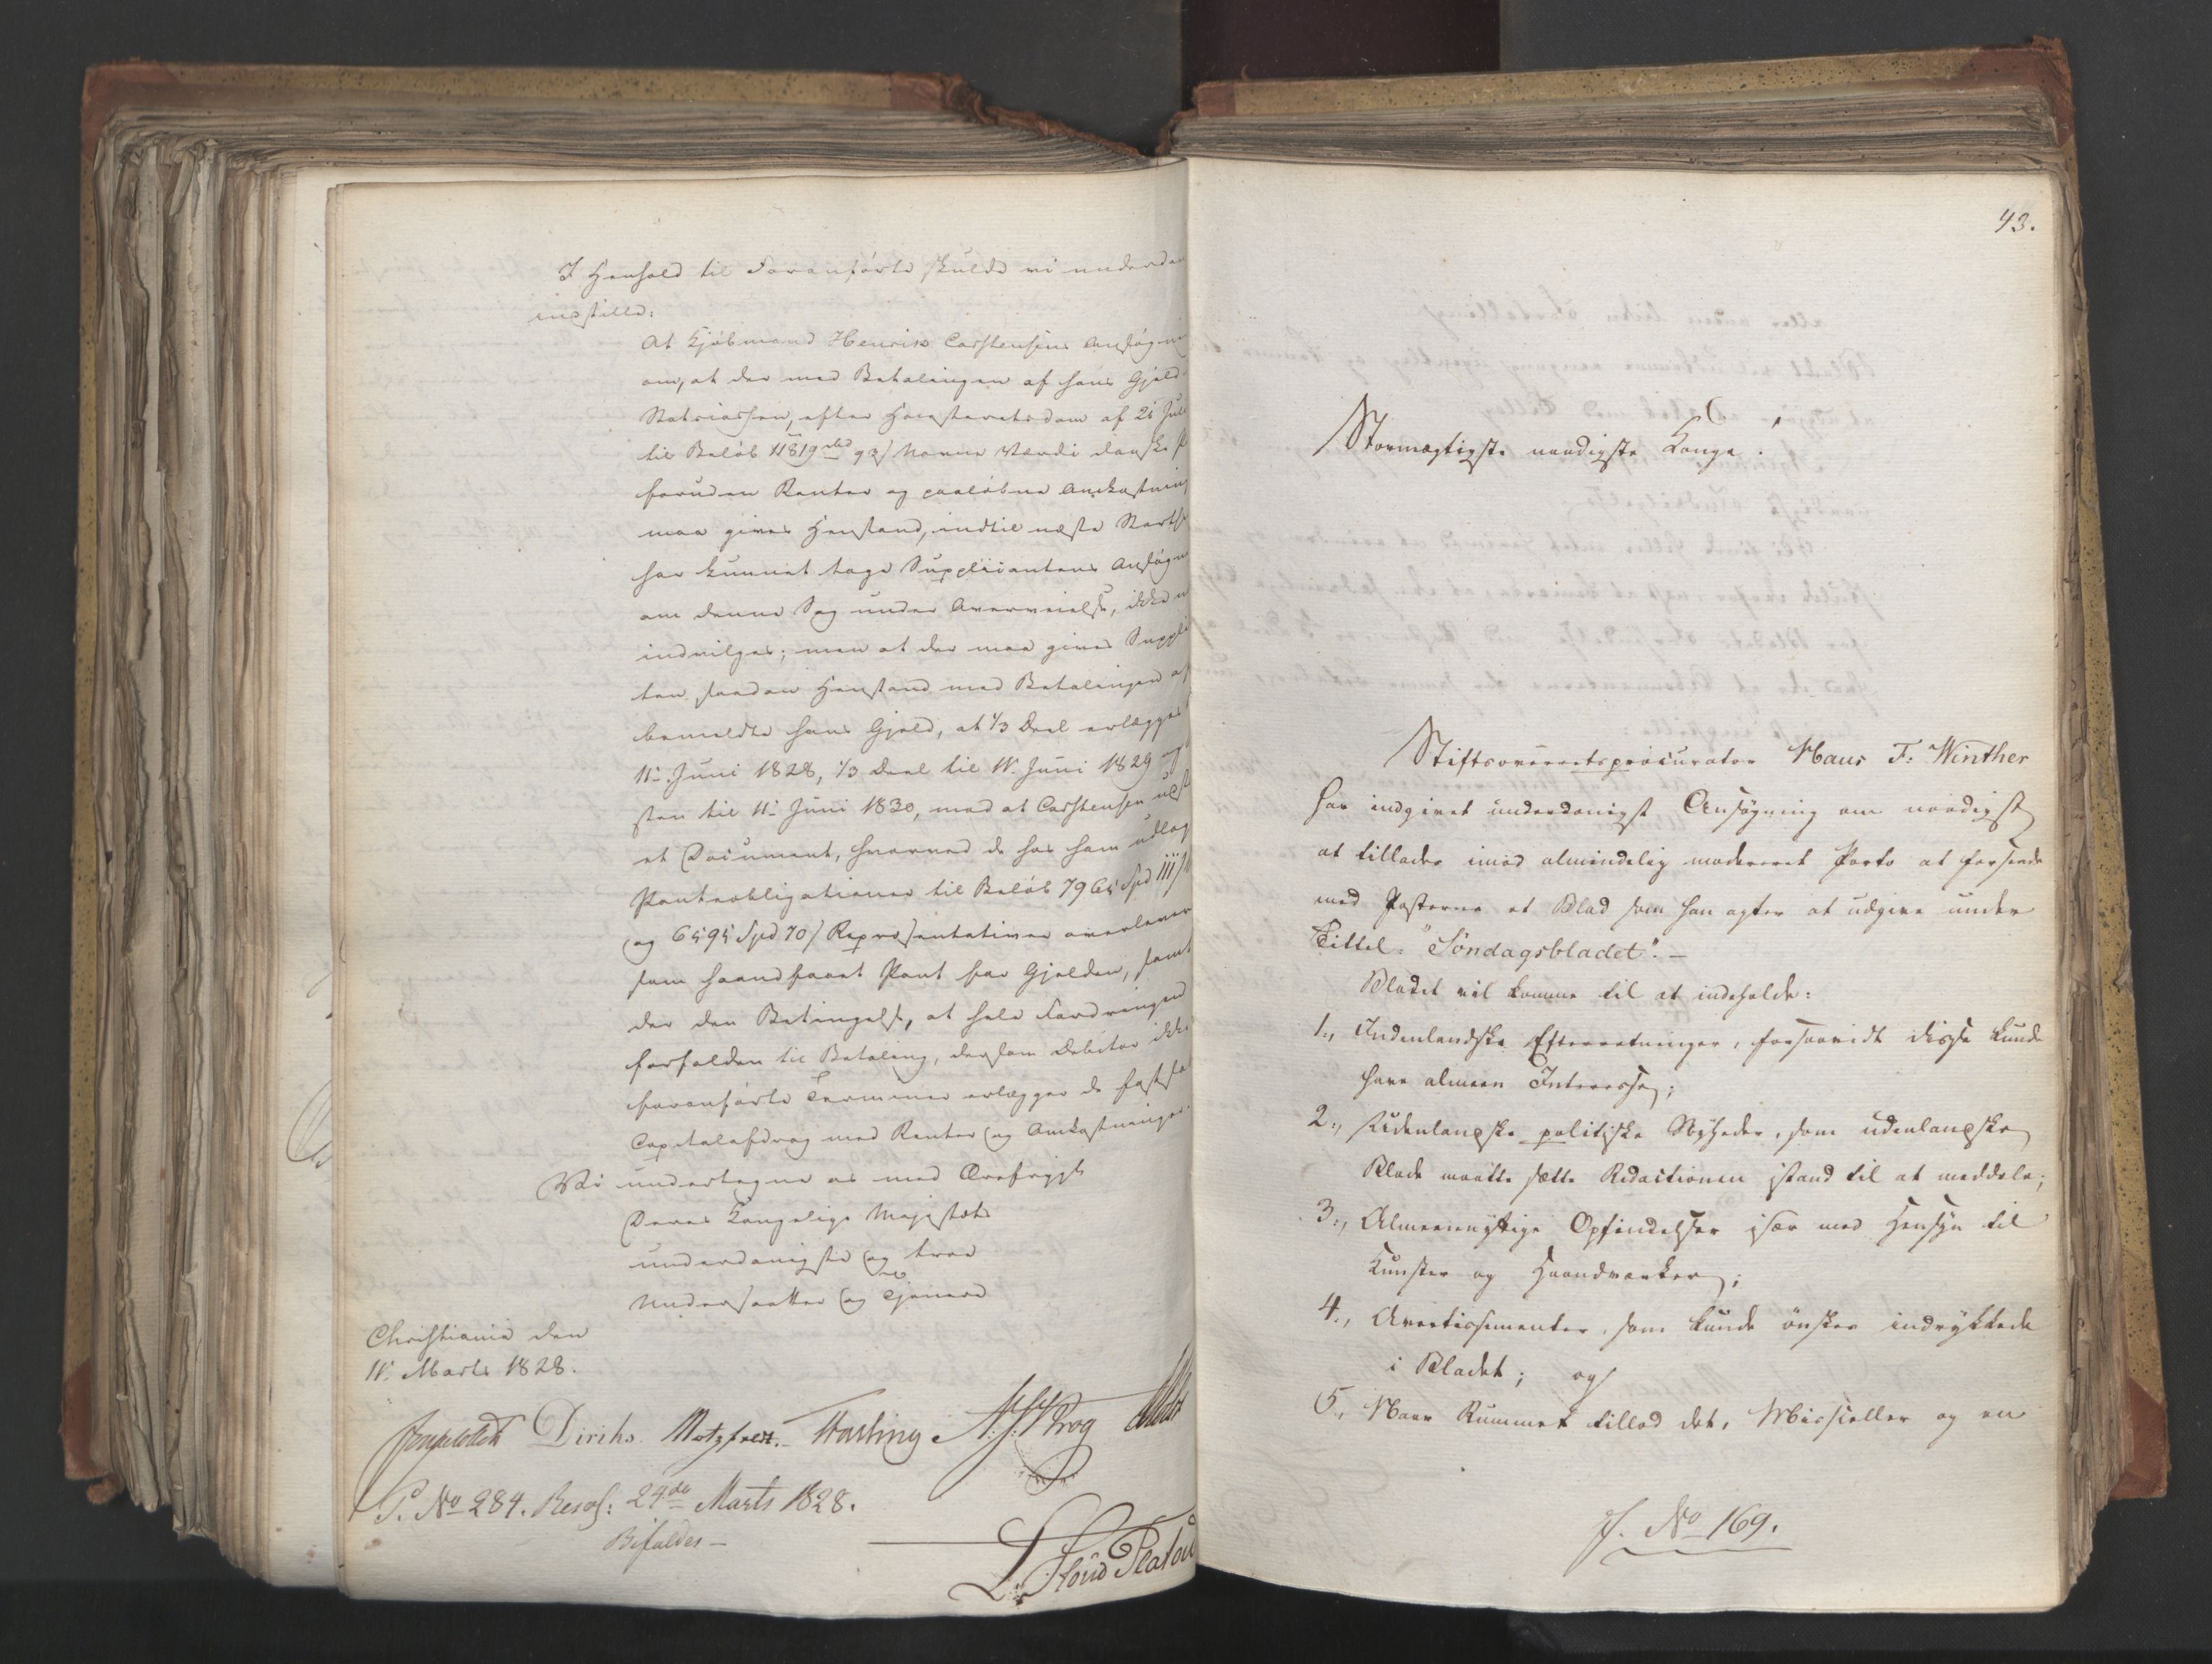 I Henhold til Foranførte skulde vi underda
indstille:
At Kjøbmand Henrik Carstensens Ansøgni
om, at der med Betalingen af hans Gjeld
Statscassen, efter Høiesteretsdom af 21 Jul
til Beløb 11819 rbd 92/ Navne Værdi danske
foruden Renter og paaløbne Omkostning
maa gives Henstand, indtil næste Storth
har kunnet tage Supplicantens Ansøgn
om denne Sag under Overveielse, ikke
indvilges; men at der maa gives Suppli
ten saadan Henstand med Betalingen af
bemeldte hans Gjeld, at 1/3 Deel erlægges
11. Juni 1828, 1/3 Deel til 11. Juni 1829 og
sten til 11. Juni 1830, mod at Carstensen
et Document, hvorved de hos ham udlag
Panteobligationer til Beløb 7965 Spd 111/
og 6595 Spd 70/ Repræsentativer overlever
som haandfaaet Pant for Gjelden, samt
der den Betingelse, at hele Fordringen
forfalden til Betaling, dersom Debitor ikke
foranførte Terminer erlægger de fastsa
Capitalafdrag med Renter og Omkostninger.
Vi undertegne os med Ærefrygt
Deres Kongelige Majestæts
underdanigste og troe
Undersaatter og Tjenere
Christiania den
11. Marts 1828.
Diriks Motzfeldt. Fasting N. J. Krog
P. No 284. Resol: 24de Marts 1828.
Bifaldes –
L. Stoud Platou
43.
Stormægtigste naadigste Konge!
Stiftsoverretsprocurator Hans T: Winther
har indgivet underdanigst Ansøgning om naadigst
at tillades imod almindelig modereret Porto at forsende
med Posterne et Blad som han agter at udgive under
Tittel: "Söndagsbladet". –
Bladet vil komme til at indeholde:
1., Indenlandske Efterretninger, forsaavidt disse kunde
have almeen Interesse;
2., Udenlandske politiske Nyheder, som udenlandske
Blade maatte sætte Redactionen istand til at meddele;
3., Almeennyttige Opfindelser især med Hensyn til
Kunster og Haandværker;
4., Avertissementer, som kunde ønskes indrykkede
i Bladet; og
5., Naar Rummet tillod det, Misceller og en
J. No 169.